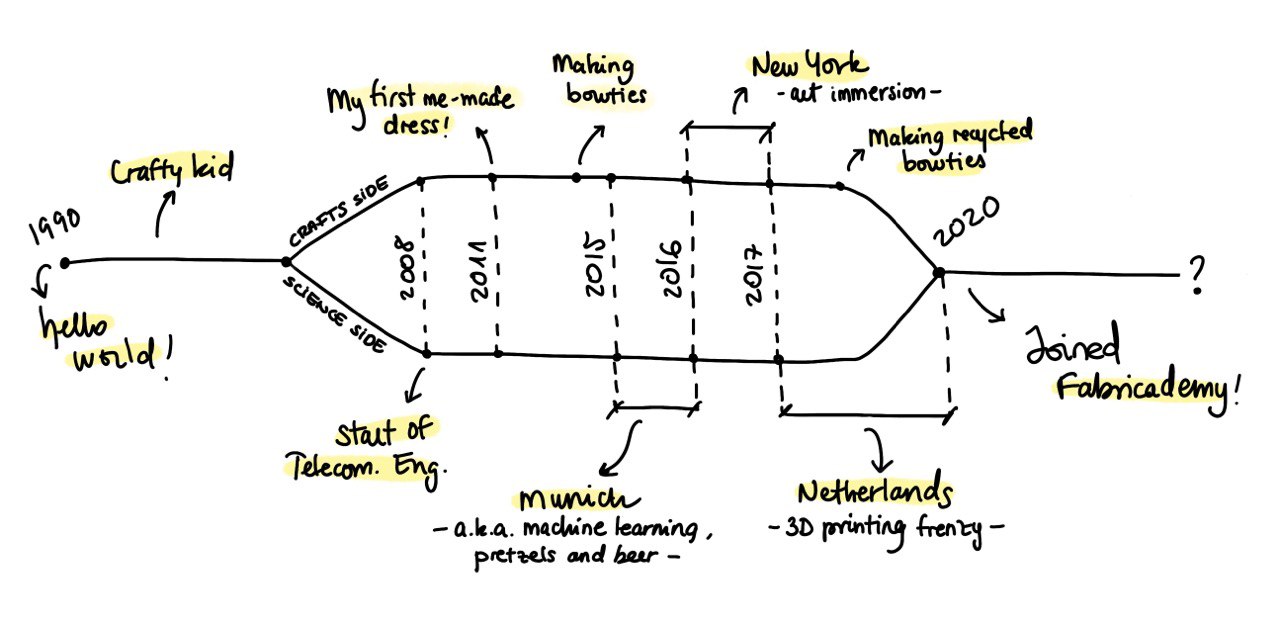 1990
hello
world!
Crafty kid
CRAFTS SIDE
SCIENCE SIDE
My first me-made
dress!
Making
bowties
New York
- art immersion -
Making recycled
bowties
2008
2011
2015
2016
2017
2020
?
Start of
Telecom. Eng.
Munich
- a.k.a. machine learning,
pretzels and beer -
Netherlands
- 3D printing frenzy -
Joined
Fabricademy!